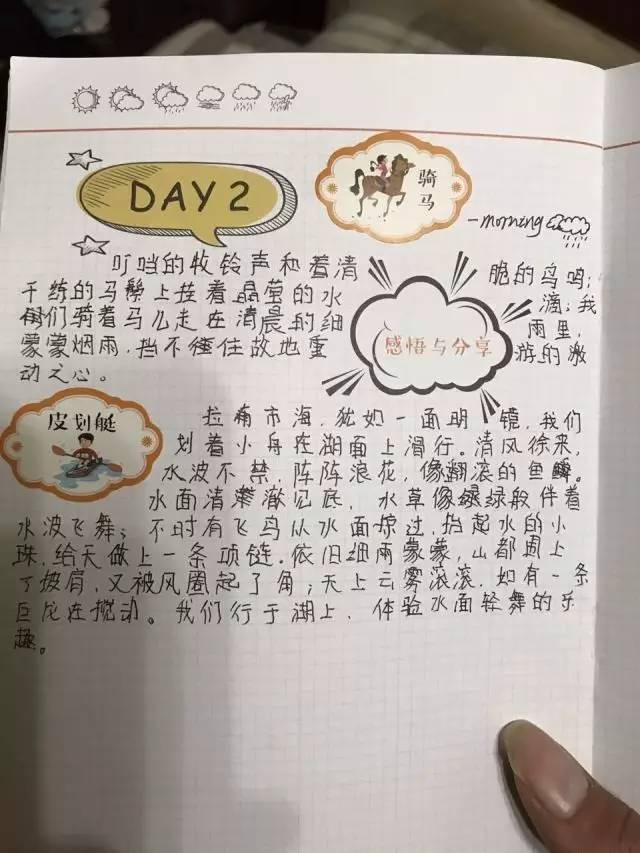 DAY 2
骑马
-morning
叮当的牧铃声和着清脆的鸟鸣;
干练的马鬃上挂着晶莹的水滴;我
们骑着马儿走在清晨的细雨里,
蒙蒙烟雨,挡不住故地重游的激
动之心。
感悟与分享
皮划艇
拉市海,犹如一面明镜,我们
划着小舟在湖面上滑行。清风徐来,
水波不禁,阵阵浪花,像翻滚的鱼鳞。
水面清澈见底,水草像绿绿般伴着
水波飞舞;不时有飞鸟从水面掠过,挡起水的小
珠,给天做上一条项链.依旧细雨蒙蒙,山都围上
了披肩,又被风圈起了角;天上云雾滚滚,如有一条
巨龙在搅动。我们行于湖上,体验水面轻舞的乐
趣。